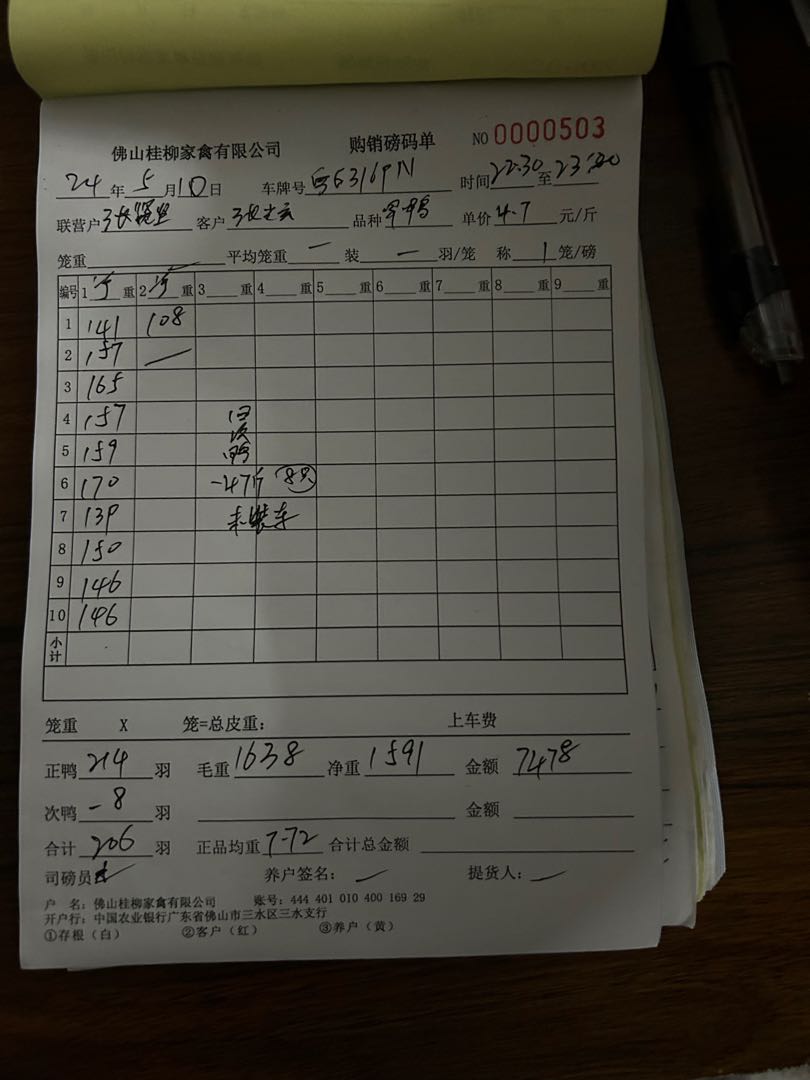 佛山桂柳家禽有限公司 购销磅码单 NO 0000503
24 年 5 月 10 日 车牌号 时间 22:30 至
联营户 客户 品种 单价 4.7 元/斤
笼重 平均笼重 一 装 一 羽/笼 称 1 笼/磅
编号 1 重 2 重 3 重 4 重 5 重 6 重 7 重 8 重 9 重
1 141 108
2 157
3 165
4 157
5 159 次
6 170 -47斤 8只
7 139 未装车
8 150
9 146
10 146
小计
笼重 X 笼=总皮重: 上车费
正鸭 214 羽 毛重 1638 净重 1591 金额 7478
次鸭 -8 羽 金额
合计 206 羽 正品均重 7.72 合计总金额
司磅员 养户签名: 提货人:
户 名: 佛山桂柳家禽有限公司 账号: 444 401 010 400 169 29
开户行: 中国农业银行广东省佛山市三水区三水支行
①存根(白) ②客户(红) ③养户(黄)